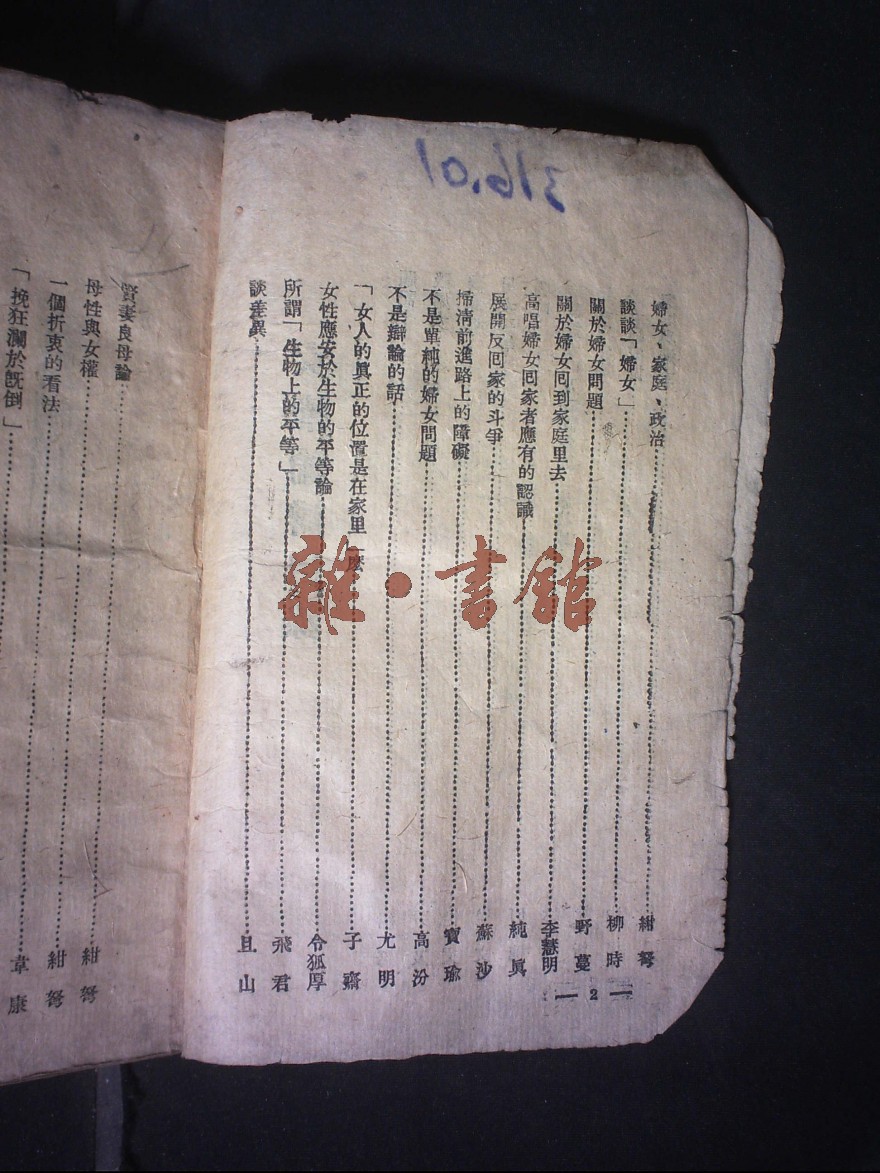 316.01
婦女、家庭、政治 紺弩
談談「婦女」 柳時
關於婦女問題 野蔓
關於婦女囘到家庭里去 李慧明
高唱婦女囘家者應有的認識 純眞
展開反囘家的斗爭 蘇沙
掃淸前進路上的障礙 寶瑜
不是單純的婦女問題 高汾
不是辯論的話 尤明
「女人的眞正的位置是在家里」麽 子齋
女性應安於生物的平等論 令狐厚
所謂「生物上的平等」 飛君
談差異 旦山
2
賢妻良母論
母性與女權 紺弩
一個折衷的看法 紺弩
「挽狂瀾於旣倒」 韋康
雜·書館